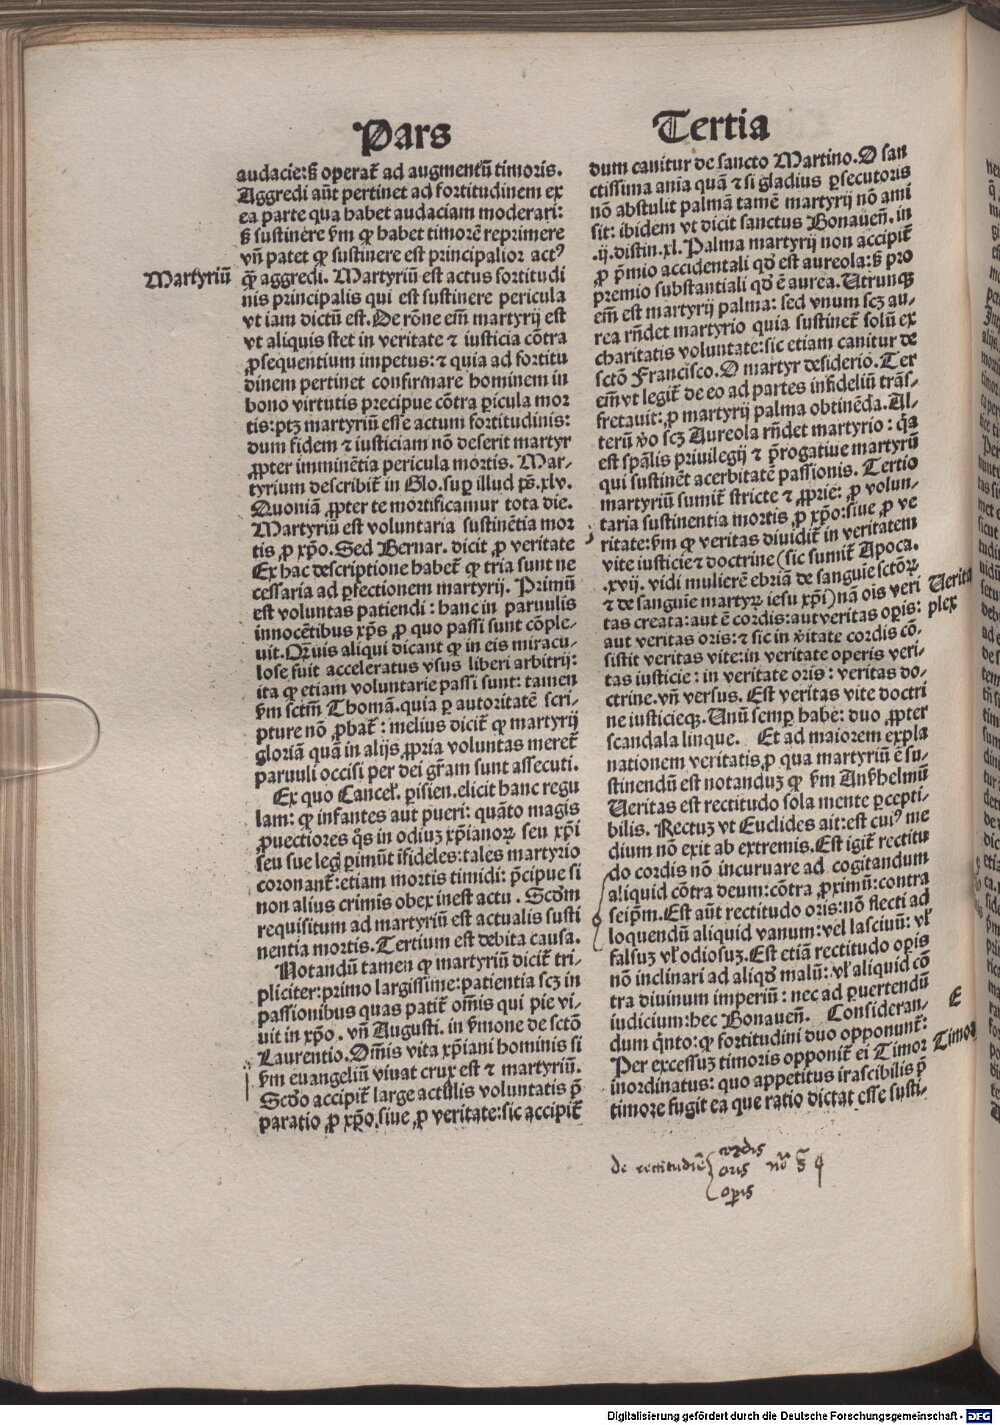 Pars
audacie:sꝫ operat᷑ ad augmentũ timoris.
Aggredi aũt pertinet ad fortitudinem ex
ea parte qua habet audaciam moderari:
sꝫ sustinere ẜm ꝙ habet timorẽ reprimere
vñ patet ꝙ sustinere est principalior actꝰ
Martyriũ
ꝙ̃ aggredi. Martyriũ est actus fortitudi
nis principalis qui est sustinere pericula
vt iam dictũ est. De rõne em̃ martyrij est
vt aliquis stet in veritate ⁊ iusticia cõtra
ꝓsequentium impetus: ⁊ quia ad fortitu
dinem pertinet confirmare hominem in
bono virtutis precipue cõtra ꝑicula mor
tis: ptꝫ martyriũ esse actum fortitudinis:
dum fidem ⁊ iusticiam nõ deserit martyr
ꝓpter imminẽtia pericula mortis. Mar-
tyrium describit᷑ in Glo. suꝑ illud ps̃. xlv.
Quoniã ꝓpter te mortificamur tota die.
Martyriũ est voluntaria sustinẽtia mor
tis ꝓ xp̃o. Sed Bernar. dicit ꝓ veritate
Ex hac descriptione habet᷑ ꝙ tria sunt ne
cessaria ad ꝑfectionem martyrij. Primũ
est voluntas patiendi: hanc in paruulis
innocẽtibus xp̃s ꝓ quo passi sunt cõple-
uit. Qꝛuis aliqui dicant ꝙ in eis miracu-
lose fuit acceleratus vsus liberi arbitrij:
ita ꝙ etiam voluntarie passi sunt: tamen
ẜm sctm̃ Thomã. quia ꝑ autoritatẽ scri-
pture nõ ꝓbat᷑: melius dicit᷑ ꝙ martyrij
gloriã quã in alijs ꝓpria voluntas meret᷑
paruuli occisi per dei gr̃am sunt assecuti.
Ex quo Cancel̃. ꝑisien. elicit hanc regu
lam: ꝙ infantes aut pueri: quãto magis
ꝓuectiores q̃s in odiuꝫ xp̃ianoꝝ seu xp̃i
seu sue leg̃ ꝑimũt ĩfideles: tales martyrio
coronant᷑: etiam mortis timidi: p̃cipue si
non alius crimis obex inest actu. Scd̃m
requisitum ad martyriũ est actualis susti
nentia mortis. Tertium est debita causa.
Notandũ tamen ꝙ martyriũ dicit᷑ tri-
pliciter: primo largissime: patientia scꝫ in
passionibus quas patit᷑ om̃is qui pie vi-
uit in xp̃o. vñ Augusti. in ẜmone de sctõ
Laurentio. Om̃is vita xp̃iani hominis si
ẜm euangeliũ viuat crux est ⁊ martyriũ.
Scd̃o accipit᷑ large actual̃is voluntatis p̃
paratio ꝓ xp̃o, siue ꝓ veritate: sic accipit᷑
Tertia
dum canitur de sancto Martino. O san
ctissima aĩa quã ⁊ si gladius ꝑsecutoris
nõ abstulit palmã tamẽ martyrij nõ ami
sit: ibidem vt dicit sanctus Bonaueñ. in
.ij. distin. xl. Palma martyrij non accipit᷑
ꝓ p̃mio accidentali qd̃ est aureola: sꝫ pro
premio substantiali qd̃ ẽ aurea. Utrunqꝫ
em̃ est martyrij palma: sed vnum scꝫ au-
rea rñdet martyrio quia sustinet᷑ solũ ex
charitatis voluntate: sic etiam canitur de
sctõ Francisco. O martyr desiderio. Ter
em̃ vt legit᷑ de eo ad partes infideliũ trãs-
fretauit: ꝓ martyrij palma obtinẽda. Al-
terũ ṽo scꝫ Aureola rñdet martyrio: q̃a
est sp̃alis priuilegij ⁊ p̃rogatiue martyrũ
qui sustinẽt acerbitatẽ passionis. Tertio
martyriũ sumit᷑ stricte ⁊ ꝓprie: ꝓ volun-
taria sustinentia mortis ꝓ xp̃o: siue ꝓ ve
ritate: ẜm ꝙ veritas diuidit᷑ in veritatem
vite iusticie ⁊ doctrine (sic sumit᷑ Apoca.
.xvij. vidi mulierẽ ebriã de sanguĩe sctõꝝ
⁊ de sanguĩe martyꝝ iesu xp̃i) nã oĩs veri
Verita
tas creata: aut ẽ cordis: aut veritas oꝑis:
plex
aut veritas oris: ⁊ sic in ṽitate cordis cõ-
sistit veritas vite: in veritate operis veri-
tas iusticie: in veritate oris: veritas do-
ctrine. vñ versus. Est veritas vite doctri
ne iusticieqꝫ. Unũ semꝑ habe: duo ꝓpter
scandala linque. Et ad maiorem expla
nationem veritatis ꝓ qua martyriũ ẽ su-
stinendũ est notanduꝫ ꝙ ẜm Anshelmũ
Veritas est rectitudo sola mente ꝑcepti-
bilis. Rectuꝫ vt Euclides ait: est cuiꝰ me
dium nõ exit ab extremis. Est igit᷑ rectitu
do cordis nõ incuruare ad cogitandum
aliquid cõtra deum: cõtra ꝓximũ: contra
seip̃m. Est aũt rectitudo oris: nõ flecti ad
loquendũ aliquid vanum: vel lasciuũ: vl̃
falsuꝫ vl̃ odiosuꝫ. Est etiã rectitudo oꝑis
nõ inclinari ad aliqd̃ malũ: vl̃ aliquid cõ
tra diuinum imperiũ: nec ad ꝑuertendũ
E
iudicium: hec Bonaueñ. Consideran-
dum q̃nto: ꝙ fortitudini duo opponunt᷑:
Timor
Per excessuꝫ timoris opponit᷑ ei Timor
inordinatus: quo appetitus irascibilis p̃
timore fugit ea que ratio dictat esse susti-
de rectitudiẽ
cordis
oris
oꝑis
Digitalisierung gefördert durch die Deutsche Forschungsgemeinschaft - DFG